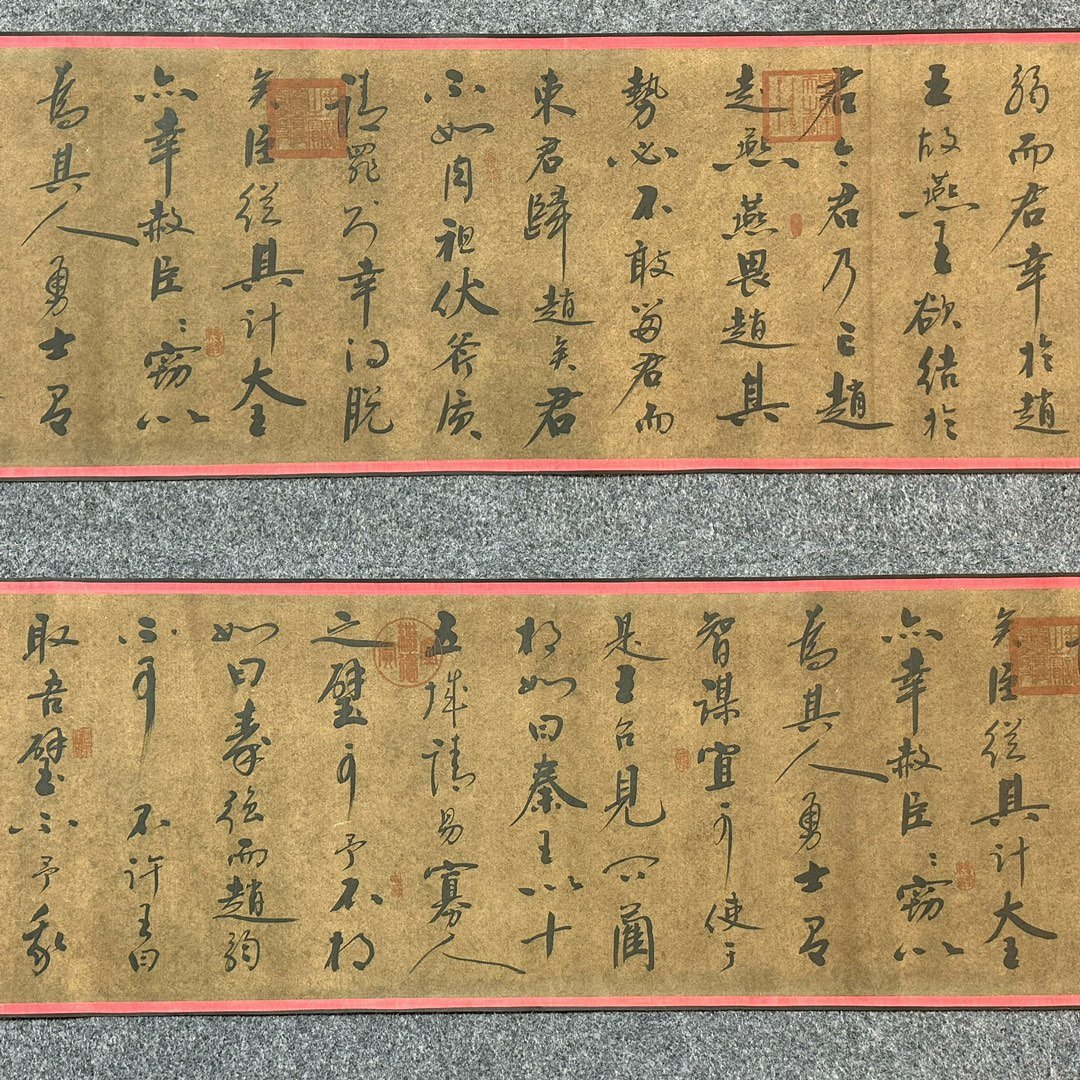 弱而君幸於趙
王故燕王欲結於
君今君乃亡趙
走燕燕畏趙其
勢必不敢留君而
束君歸趙矣君
不如肉袒伏斧质
請罪则幸得脱
矣臣從其計大王
亦幸赦臣〻竊以
為其人勇士有
矣臣從其計大王
亦幸赦臣〻竊以
為其人勇士有
智謀宜可使于
是王召見问藺
相如曰秦王以十
五城請易寡人
之璧可予不相
如曰秦強而趙弱
不可不許王曰
取吾璧不予我